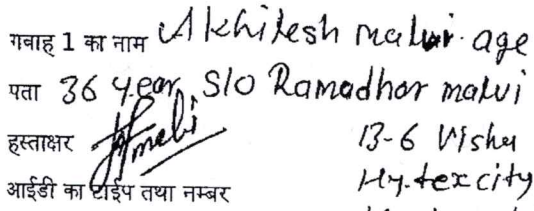 गवाह 1 का नाम Akhilesh malvi. age
पता 36 year S/O Ramadhar malvi
हस्ताक्षर B-6 Vishu
आईडी का टाईप तथा नम्बर Hy-tex city